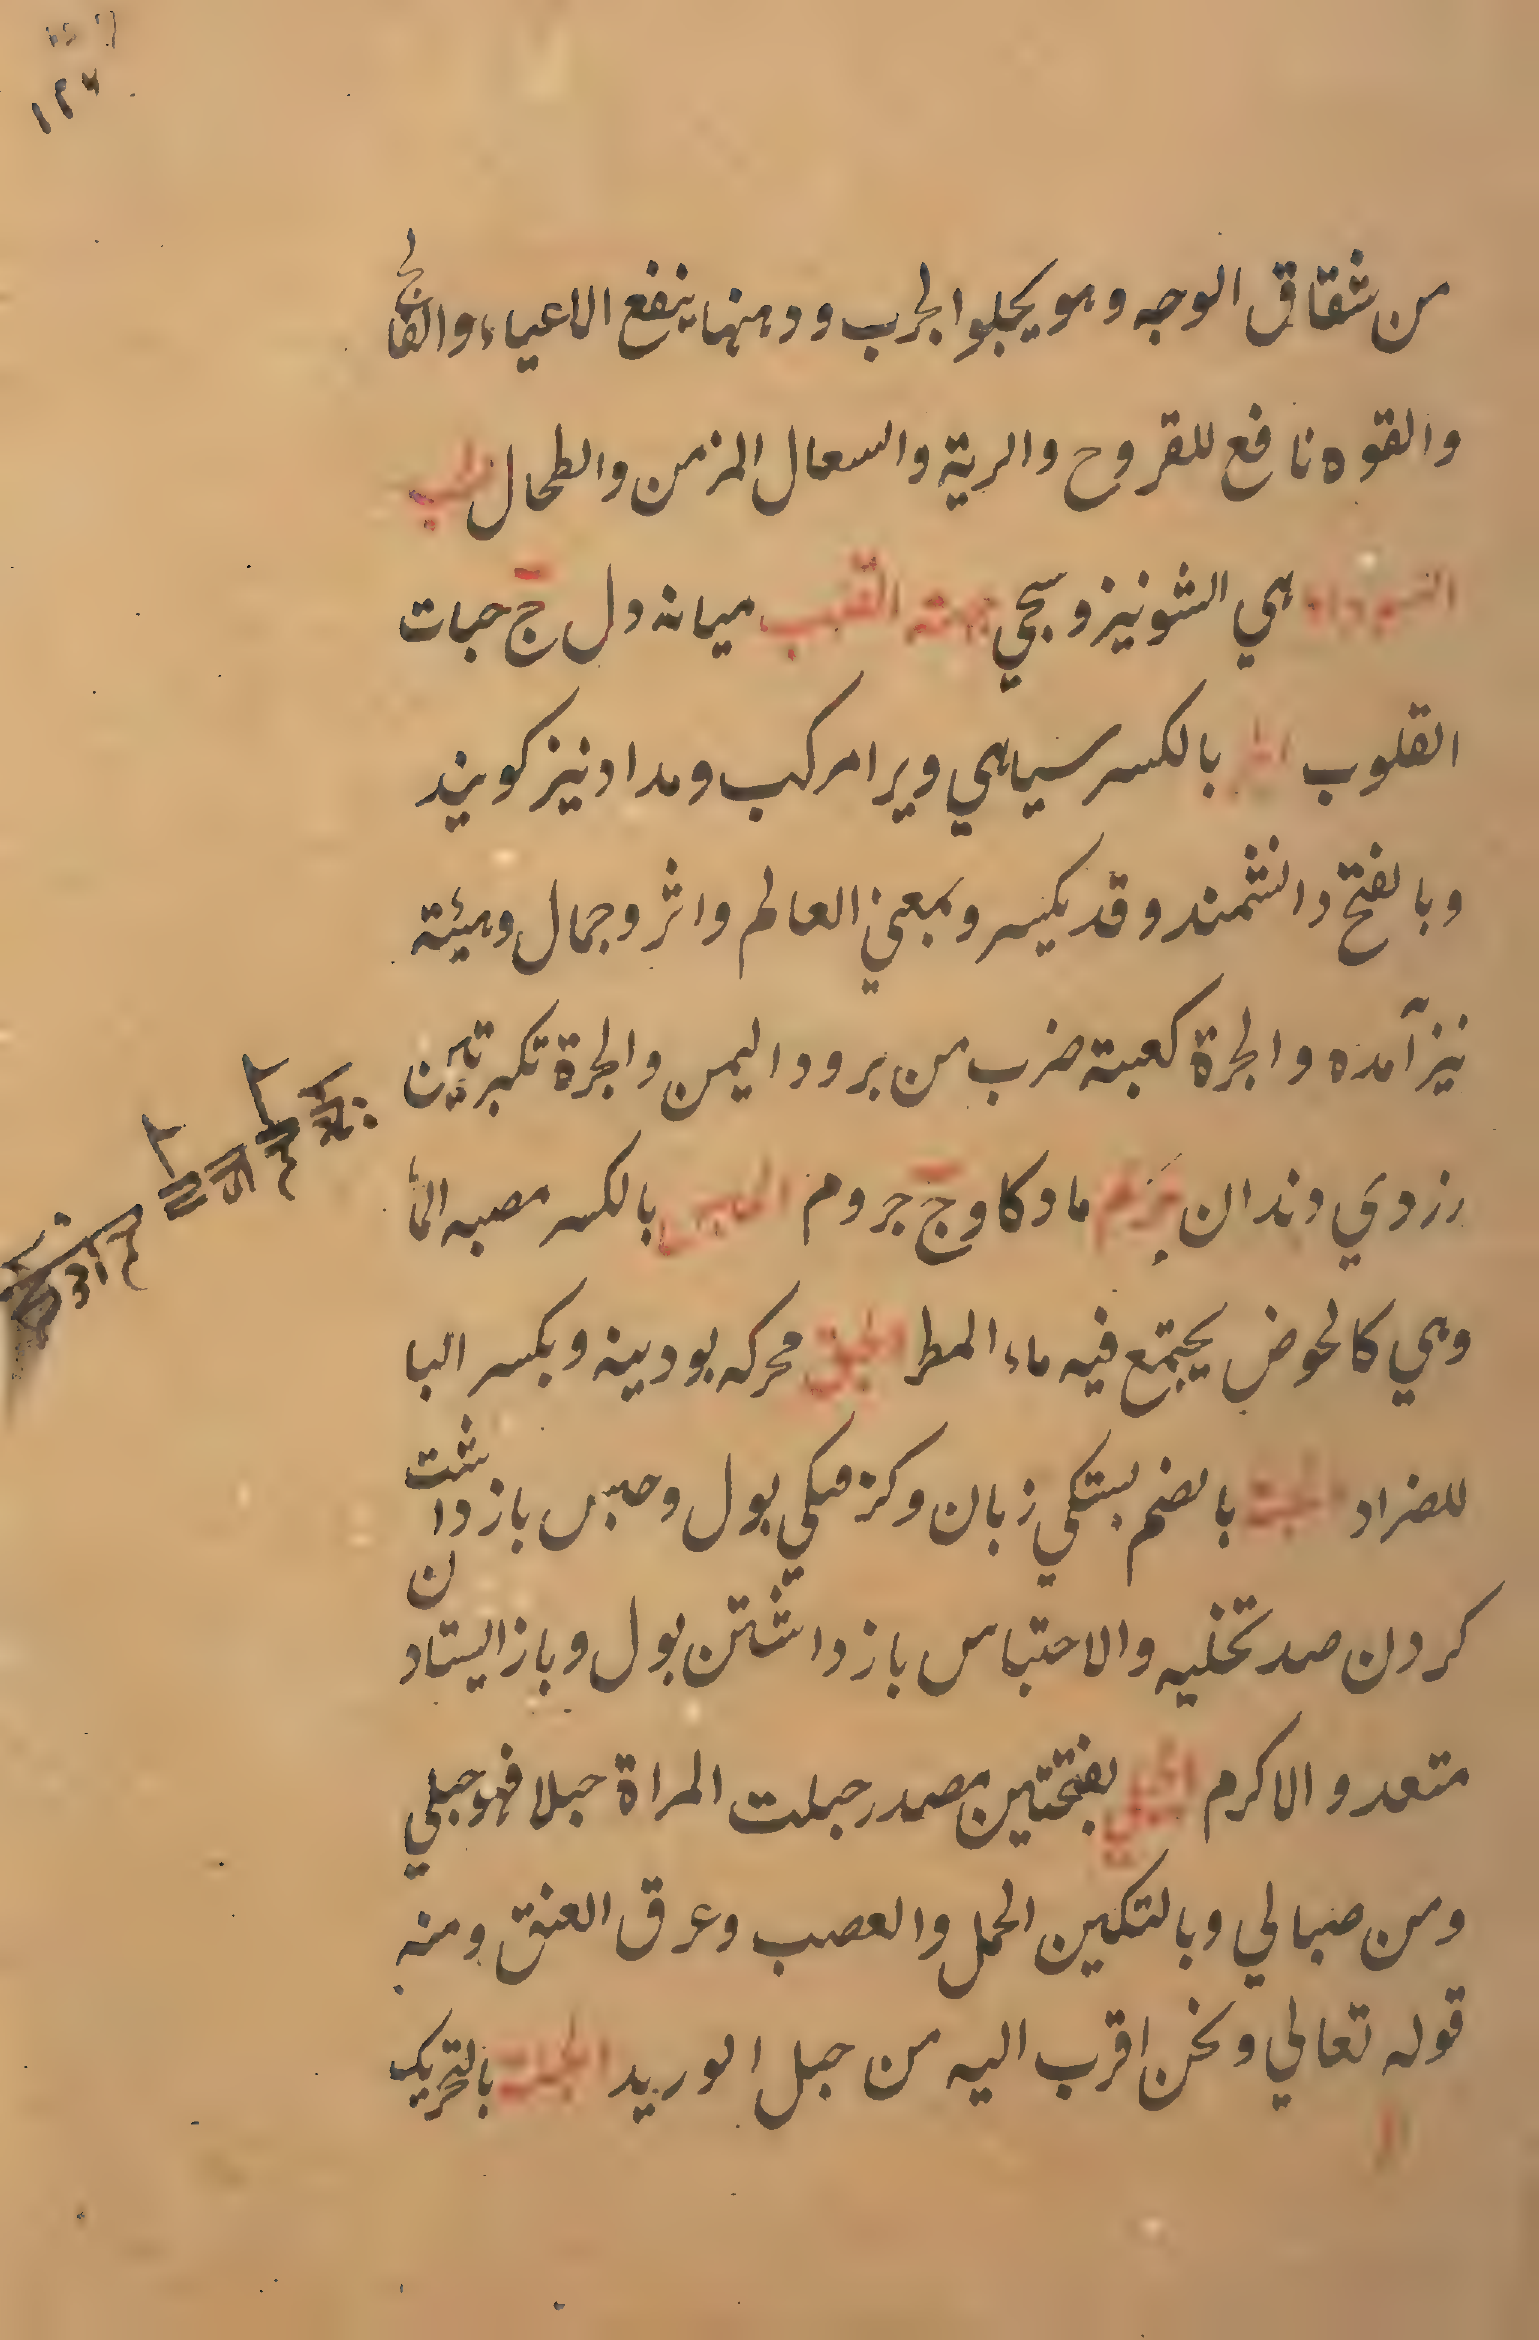 ١٢٧
من شقاق الوجه وهو يجلوا لجرب ودهنها ينفع الاعياء والفالج
والقوه نافع للقروح والرية والسعال المزمن والطحال
السوداء هي الشونيز وسجي حبة القلب ميانه دل ج حبات
القلوب بالكسر سياهي ويرا مركب ومداد نيز كويند
وبالفتح دانشمند وقد يكسر وبمعني العالم واثر وجمال وهيئة
نيز آمده والحبرة كعبنة ضرب من برود اليمن والحبرة تكبرتين
زردي دندان ماد كاو ج جروم الحبس بالكسر مصبه الما
وهي كالحوض يجتمع فيه ماء المطر الحبق محركه بودينه وبكسر البا
للضراد الحبسة بالضم بستكي زبان وكرفتكي بول وحبس بازداشت
كردن ضد تخليه والاحتباس بازداشتن بول وبازايستادن
متعد و الاكرم الحبلي بفتحتين مصدر حبلت المراة حبلا فهو حبلي
ومن حبالي وبالتكين الحمل والعصب وعرق العنق ومنه
قوله تعالي ونحن اقرب اليه من حبل الوريد الحبلة بالتحريك